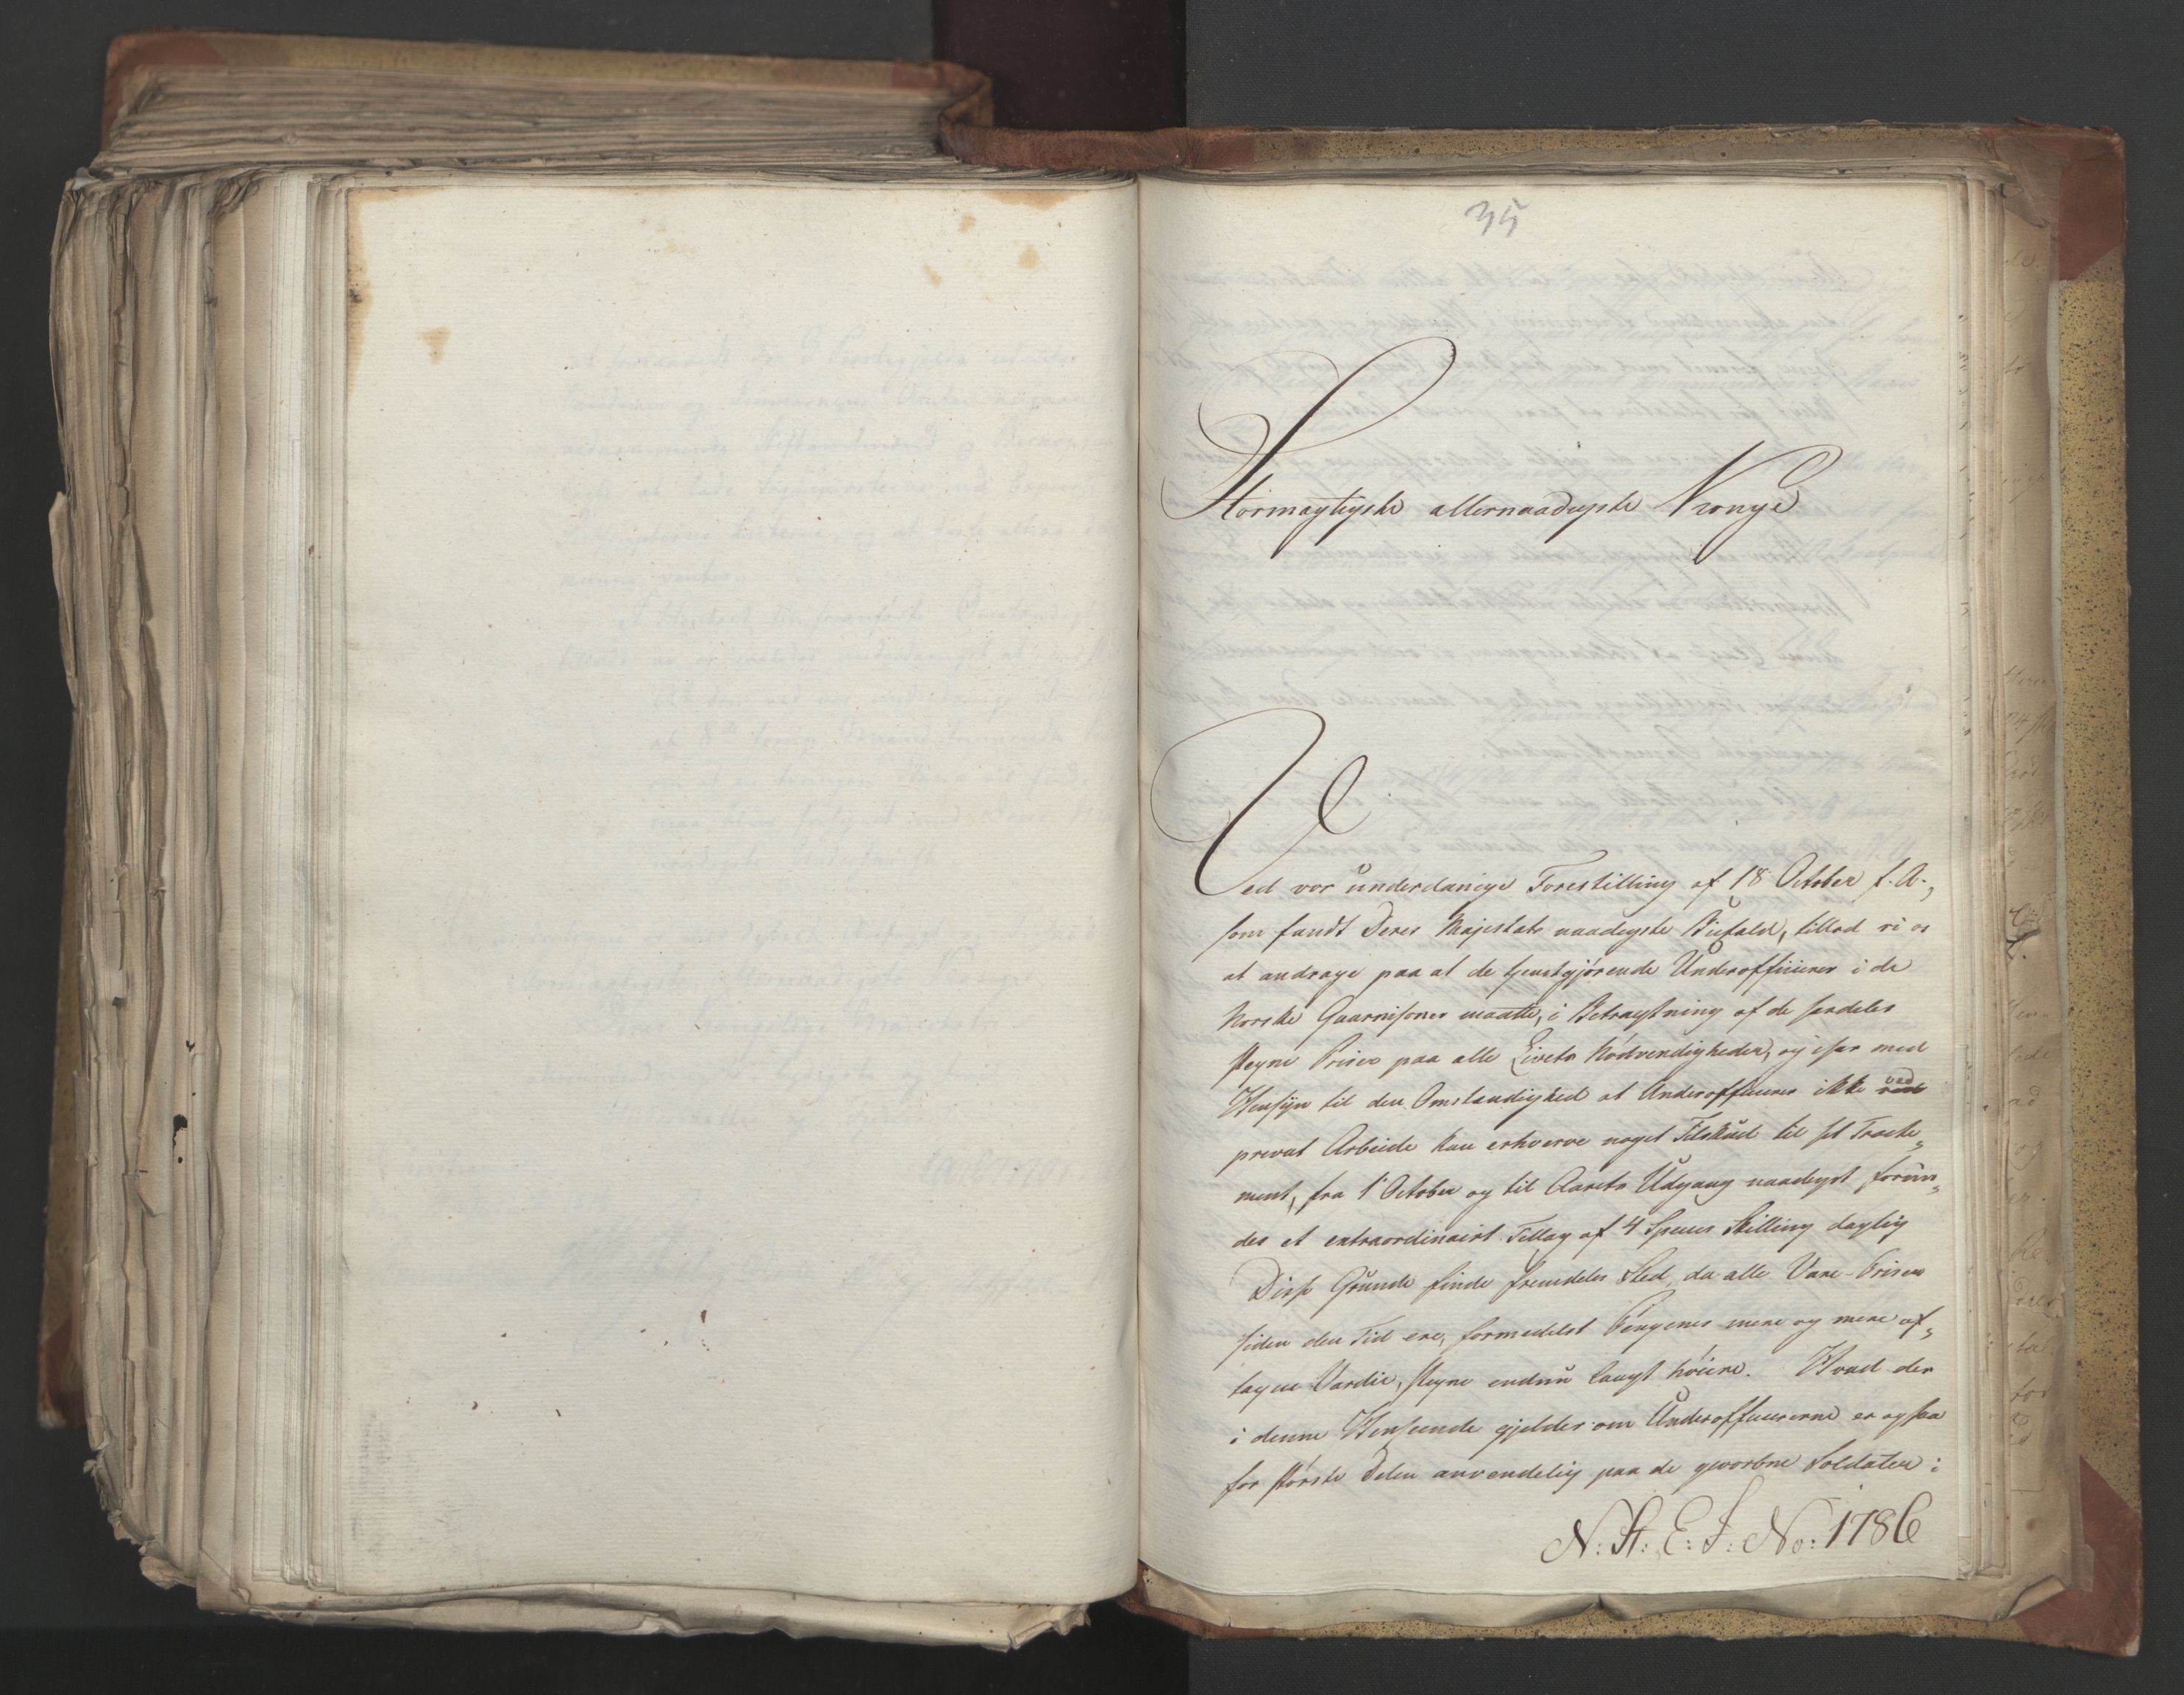 35
Stormægtigste allernaadigste Konge
Ved vor underdanige Forestilling af 18 October f. A.,
som fandt Deres Majestæts naadigste Biefald, tillod vi os
at andrage paa at de tjenstgjörende Underofficierer i de
Norske Guarnisoner maatte, i Betragtning af de særdeles
stegne Priser paa alle Livets Nödvendigheder, og især med
Hensyn til den Omstændighed at Underofficierer ikke ved
privat Arbeide kan erhverve noget Tilskud til sit Tracte„
ment, fra 1 October og til Aarets Udgang naadigst forun„
des et extraordinairt Tillæg af 4 Species Skilling daglig
Disse Grunde finde fremdeles Sted, da alle Vare-Priser
siden den Tid ere, formedelst Pengenes mere og mere af„
tagne Værdie, stegne endnu langt höiere. Hvad der
i denne Henseende gjelder om Underofficiererne er ogsaa
for störste Delen anvendelig paa de gevorbne Soldater i
N: St: E: J: No: 1786